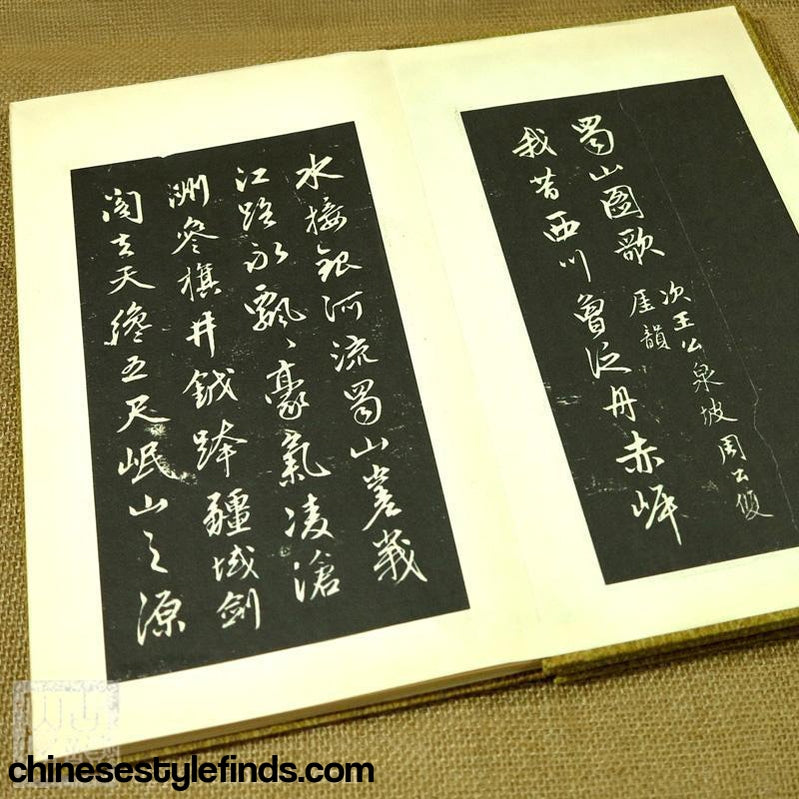 蜀山圖歌
次王公泉坡周公
厓韻
我昔西川曾泛丹赤岬
水接銀河流蜀山嵳峩
江路永飄飄豪氣凌滄
洲參旗井鉞跨疆域劍
閣去天纔五尺岷山之源
chinesestylefinds.com